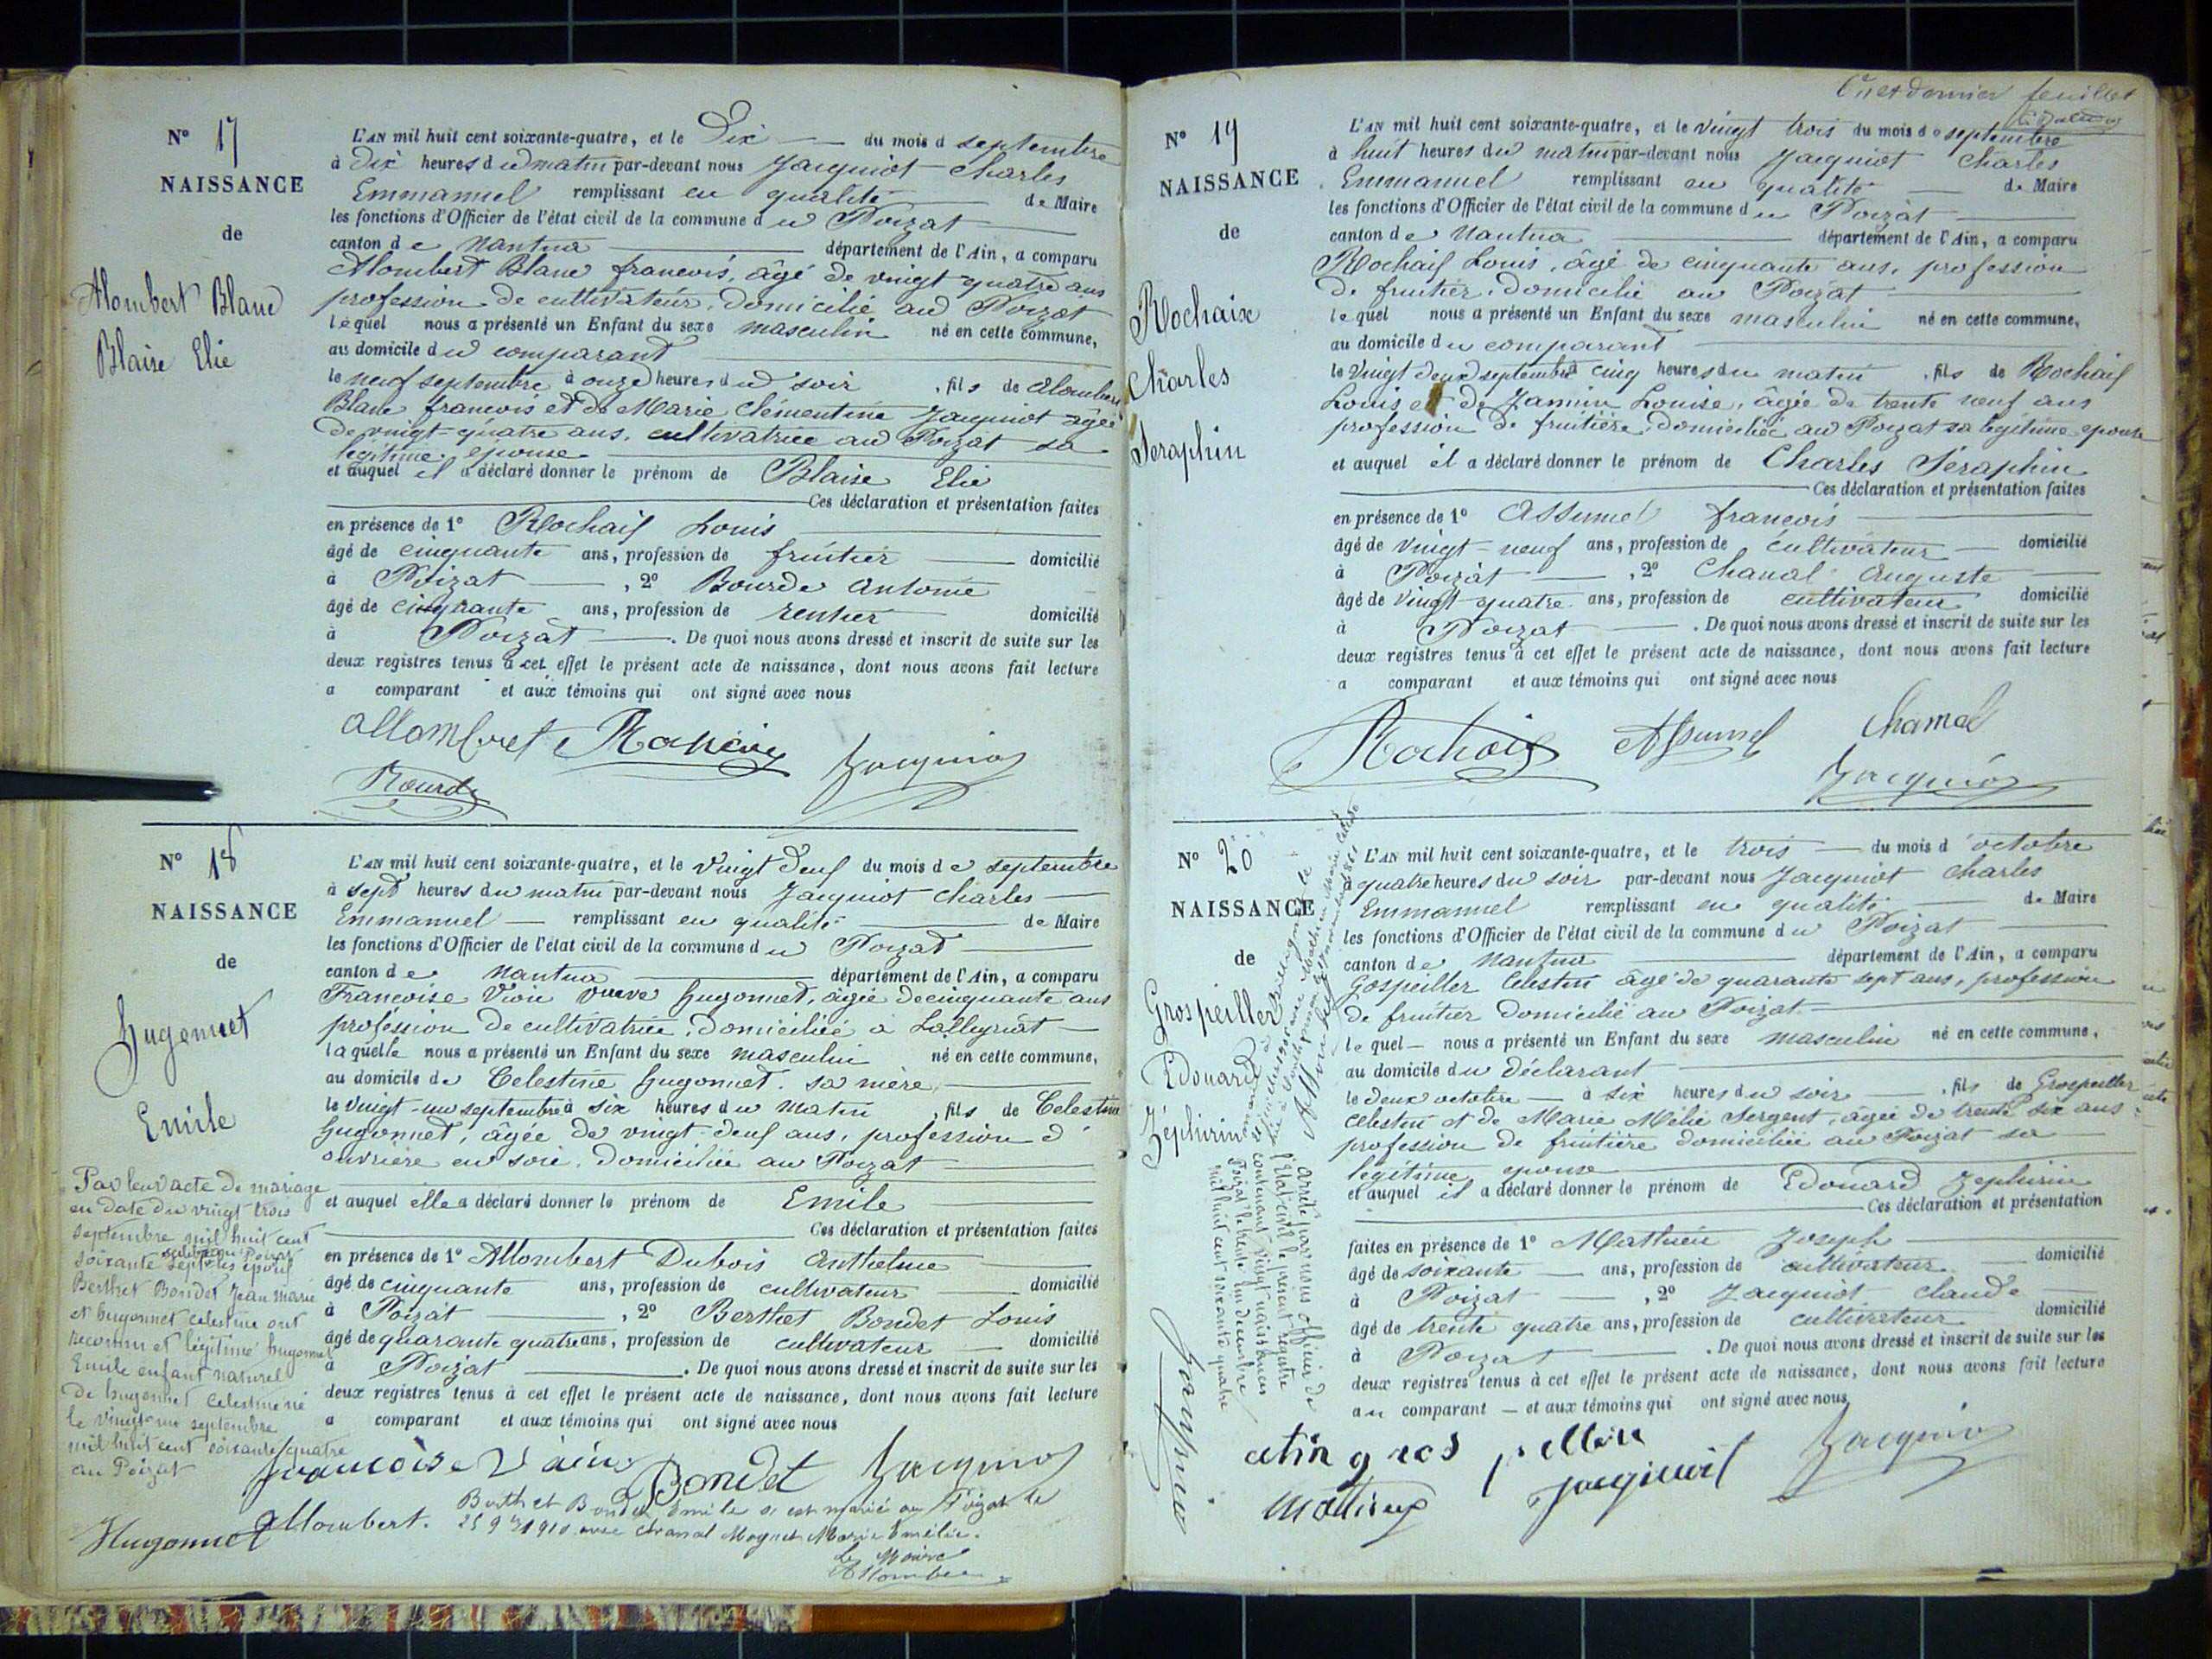 N° 17
NAISSANCE
de
Alombert Blanc
Blaise Elie
L'AN mil huit cent soixante-quatre, et le Dix du mois d septembre
à dix heures du matin par-devant nous Jacquiot Charles
Emmanuel remplissant en qualité de Maire
les fonctions d'Officier de l'état civil de la commune du Poizat
canton de Nantua département de l'Ain, a comparu
Alombert Blanc francois, âgé de vingt quatre ans
profession de cultivateur, domicilié au Poizat
lequel nous a présenté un Enfant du sexe masculin né en cette commune,
au domicile du comparant
le neuf septembre à onze heures du soir, fils de Alombert
Blanc francois et de Marie Clémentine Jacquiot âgée
de vingt-quatre ans, cultivatrice au Poizat sa
légitime épouse
et auquel il a déclaré donner le prénom de Blaise Elie
Ces déclaration et présentation faites
en présence de 1° Rochaif Louis
âgé de cinquante ans, profession de fruitier domicilié
à Poizat, 2° Bourde Antoine
âgé de cinquante ans, profession de rentier domicilié
à Poizat. De quoi nous avons dressé et inscrit de suite sur les
deux registres tenus à cet effet le présent acte de naissance, dont nous avons fait lecture
a comparant et aux témoins qui ont signé avec nous
Jacquiot
N° 18
NAISSANCE
de
Hugonnet
Emile
L'AN mil huit cent soixante-quatre, et le Vingt deux du mois de septembre
à sept heures du matin par-devant nous Jacquiot Charles
Emmanuel remplissant en qualité de Maire
les fonctions d'Officier de l'état civil de la commune du Poizat
canton de Nantua département de l'Ain, a comparu
Francoise veuve Hugonnet, âgée de cinquante ans
profession de cultivatrice, domiciliée à Lalleyriat
laquelle nous a présenté un Enfant du sexe masculin né en cette commune,
au domicile de Celestine Hugonnet, sa mère,
le vingt-un septembre à six heures du matin, fils de Celestine
Hugonnet, âgée de vingt-deux ans, profession d'
ouvrière en soie, domiciliée au Poizat
et auquel elle a déclaré donner le prénom de Emile
Ces déclaration et présentation faites
en présence de 1° Allombert Dubois Anthelme
âgé de cinquante ans, profession de cultivateur domicilié
à Poizat, 2° Berthet Bondet Louis
âgé de quarante quatre ans, profession de cultivateur domicilié
à Poizat. De quoi nous avons dressé et inscrit de suite sur les
deux registres tenus à cet effet le présent acte de naissance, dont nous avons fait lecture
a comparant et aux témoins qui ont signé avec nous
Par leur acte de mariage
en date du vingt trois
septembre mil huit cent
soixante sept célébré au Poizat les époux
Berthet Bondet Jean Marie
et Hugonnet Celestine ont
reconnu et légitimé Hugonnet
Emile enfant naturel
de Hugonnet Celestine né
le vingt-un septembre
mil huit cent soixante quatre
au Poizat
Bondet
Jacquiot
Hugonnet
Allombert.
Berthet Bondet Emile s'est marié au Poizat le
25 9bre 1910 avec Chanal Mognet Marie Emélie.
Le Maire
Allombert
N° 19
NAISSANCE
de
Rochaix
Charles
Seraphin
6e et dernier feuillet
L'AN mil huit cent soixante-quatre, et le vingt trois du mois de septembre
à huit heures du matin par-devant nous Jacquiot Charles
Emmanuel remplissant en qualité de Maire
les fonctions d'Officier de l'état civil de la commune du Poizat
canton de Nantua département de l'Ain, a comparu
Rochaif Louis, âgé de cinquante ans, profession
de fruitier, domicilié au Poizat
lequel nous a présenté un Enfant du sexe masculin né en cette commune,
au domicile du comparant
le vingt deux septembre à cinq heures du matin, fils de Rochaif
Louis et de Jannin Louise, âgée de trente neuf ans
profession de fruitière, domiciliée au Poizat sa légitime épouse
et auquel il a déclaré donner le prénom de Charles Séraphin
Ces déclaration et présentation faites
en présence de 1° Assumel francois
âgé de vingt-neuf ans, profession de cultivateur domicilié
à Poizat, 2° Chanal Auguste
âgé de vingt-quatre ans, profession de cultivateur domicilié
à Poizat. De quoi nous avons dressé et inscrit de suite sur les
deux registres tenus à cet effet le présent acte de naissance, dont nous avons fait lecture
a comparant et aux témoins qui ont signé avec nous
Assumel
Jacquiot
N° 20
NAISSANCE
de
Grospeiller
Edouard
Zéphirin
L'AN mil huit cent soixante-quatre, et le trois du mois d'octobre
à quatre heures du soir par-devant nous Jacquiot Charles
Emmanuel remplissant en qualité de Maire
les fonctions d'Officier de l'état civil de la commune du Poizat
canton de Nantua département de l'Ain, a comparu
Gospeiller Celestin âgé de quarante sept ans, profession
de fruitier domicilié au Poizat
lequel nous a présenté un Enfant du sexe masculin né en cette commune,
au domicile du déclarant
le deux octobre à six heures du soir, fils de Grospeiller
Celestin et de Marie Mélie Sergent, âgée de trente six ans
profession de fruitière domiciliée au Poizat sa
légitime épouse
et auquel il a déclaré donner le prénom de Edouard Zephirin
Ces déclaration et présentation
faites en présence de 1° Mathieu Joseph
âgé de soixante ans, profession de cultivateur domicilié
à Poizat, 2° Jacquiot Claude
âgé de trente quatre ans, profession de cultivateur domicilié
à Poizat. De quoi nous avons dressé et inscrit de suite sur les
deux registres tenus à cet effet le présent acte de naissance, dont nous avons fait lecture
au comparant et aux témoins qui ont signé avec nous
arrêté par nous officier de
l'Etat-civil le présent registre
contenant vingt naissances
Poizat le trente un décembre
mil huit cent soixante quatre
Jacquiot
Jacquiot